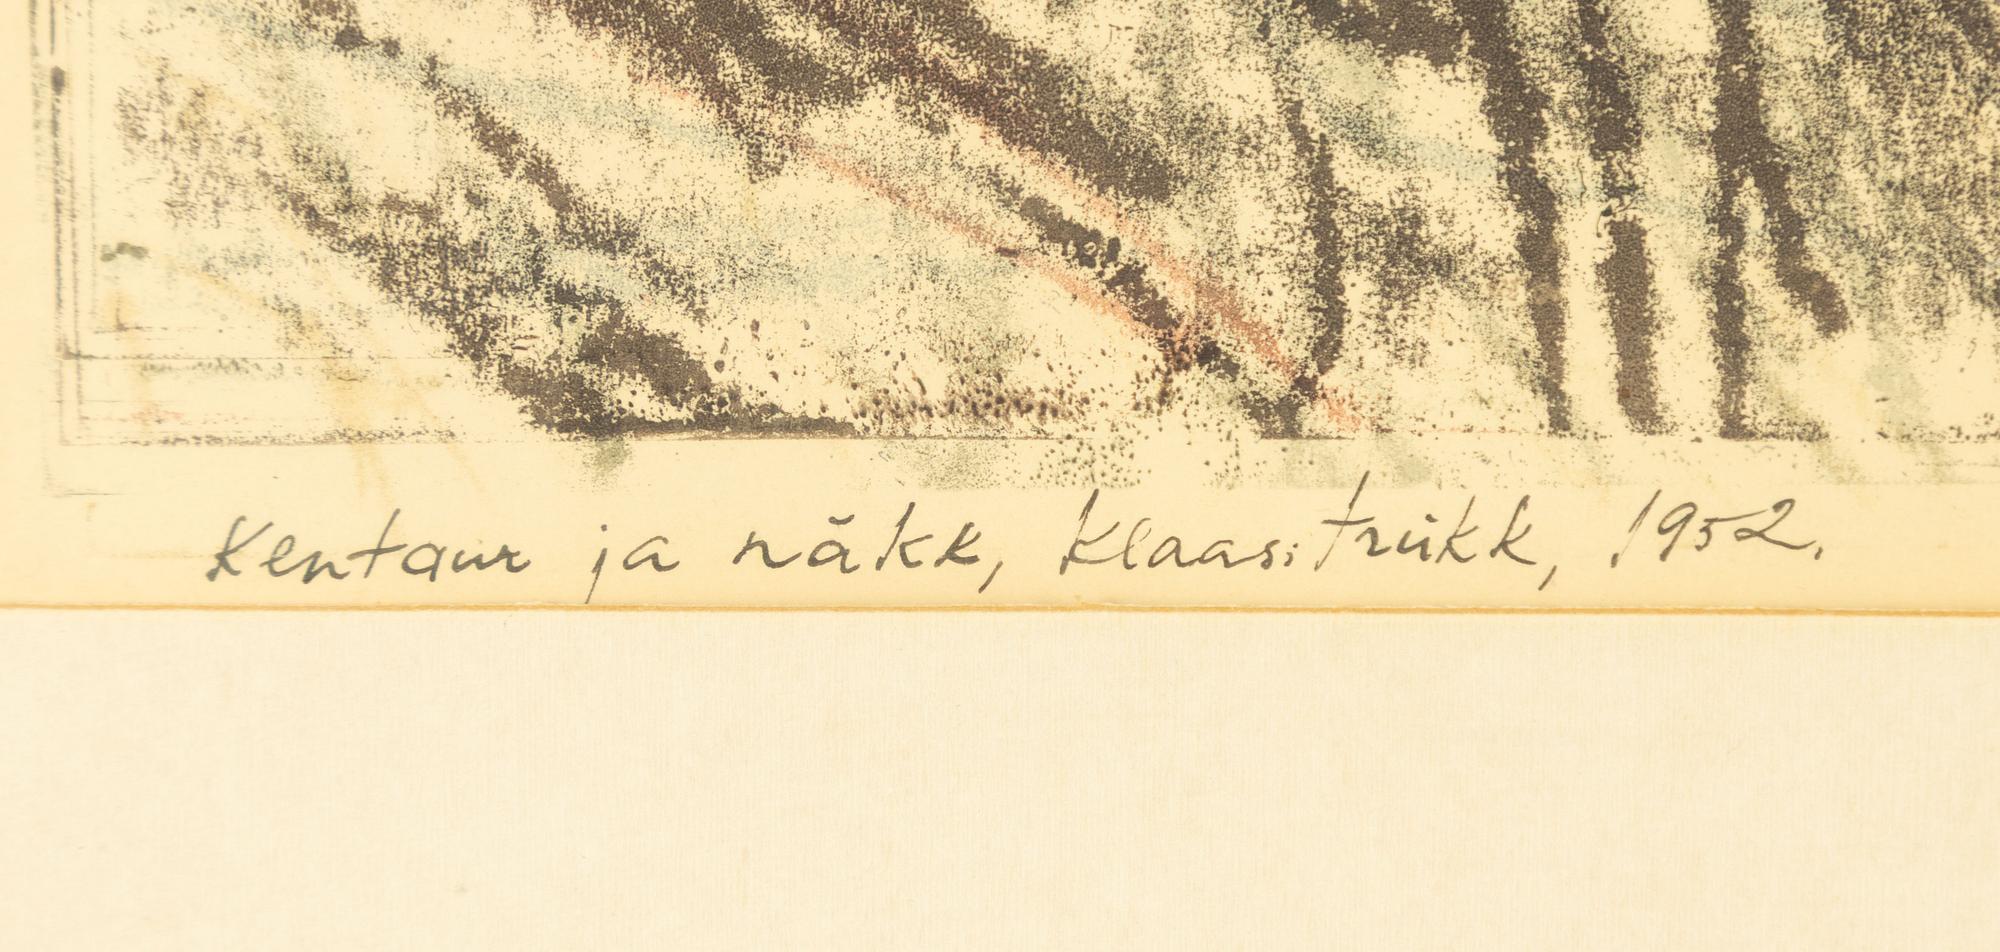 Kentaur ja näkk, klaasitrükk, 1952.